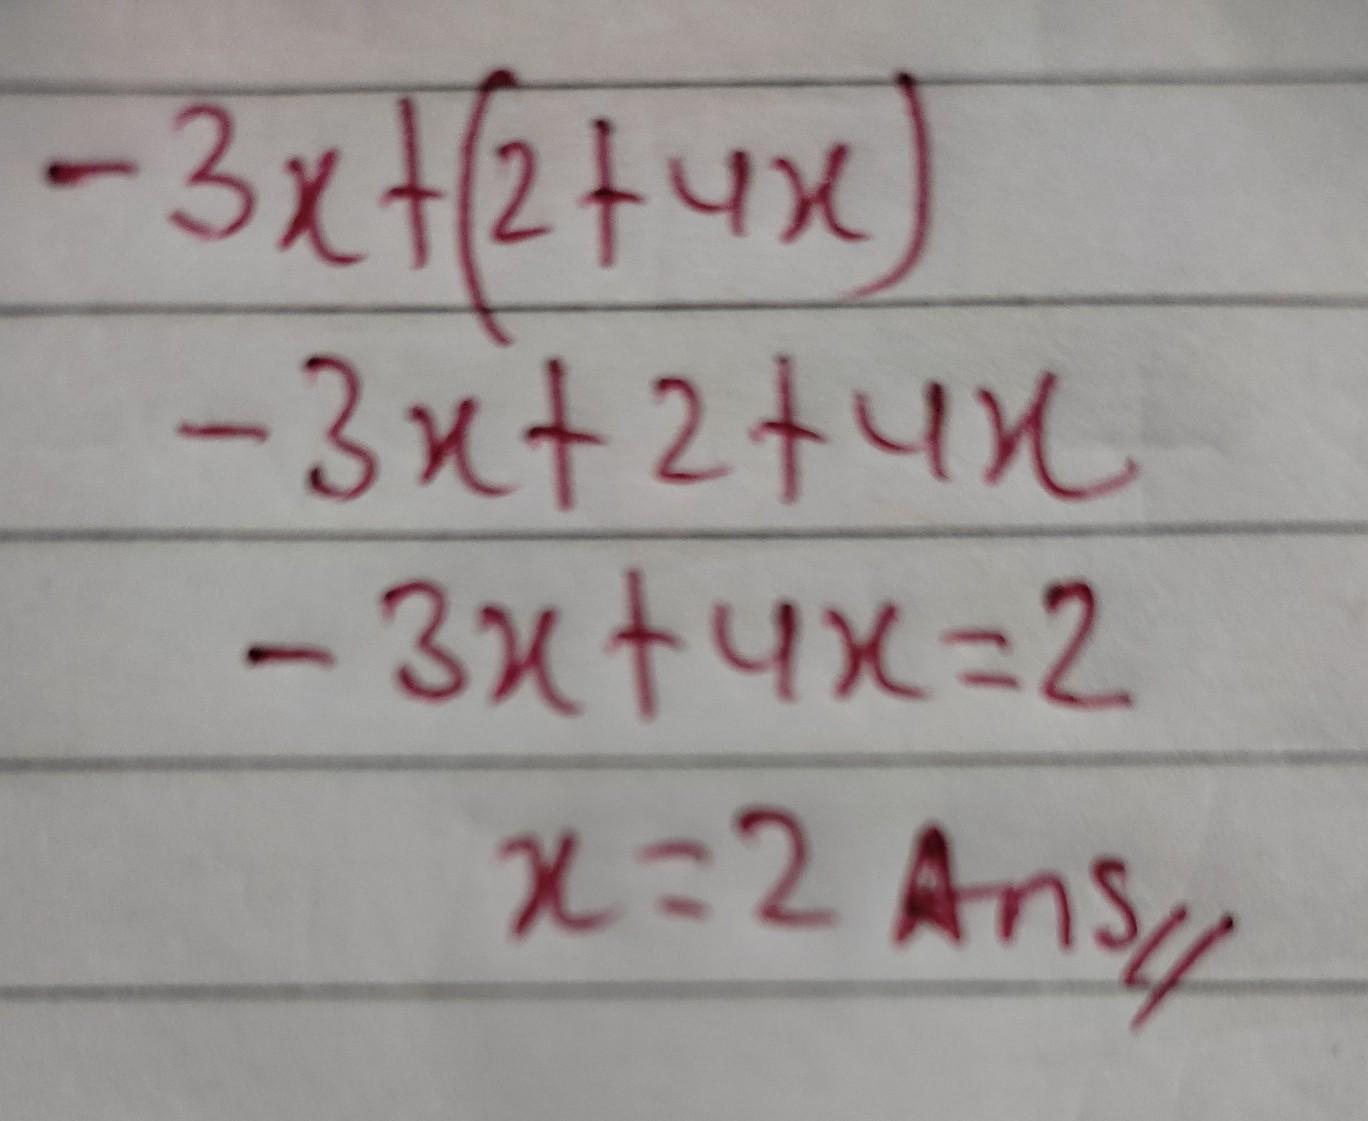 -3x+(2+4x)
-3x+2+4x
-3x+4x=2
x=2 Ans//